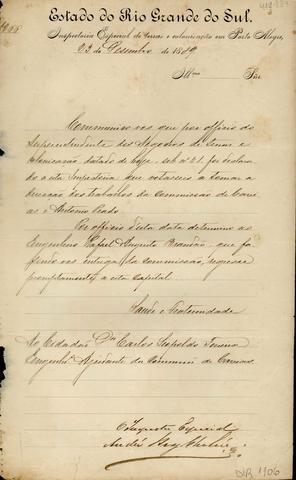 Estado do Rio Grande do Sul.
Inspectoria Especial de terras e colonisação em Porto Alegre,
23 de Dezembro de 1889
Illmo Snr.
Communico-vos que por officio do
Superintendente dos Negocios de terras e
Colonisação, datado de hoje, sob nº 21, foi declara
do a esta que voltasseis a tomar a
direcção dos trabalhos da Commissão de Caxi
as e Antonio Prado.
Por officio d'esta data determino ao
Engenheiro Rafael Augusto Brandão, que fa
sendo-vos entrega da Commissão, regresse
promptamente a esta Capital.
Saude e Fraternidade
Ao Cidadão Dr. Carlos Leopoldo
Engenhº Ajudante da Commissão de Caxias.
O Inspector Especial
DLR 1906